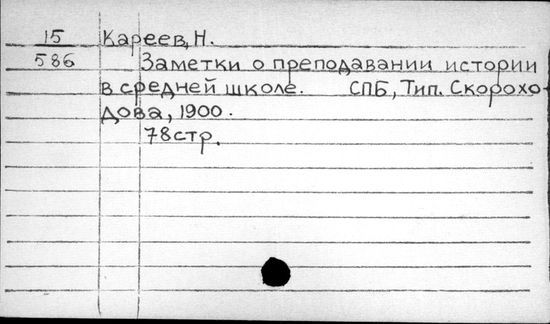 15 Кареев, Н.
586 Заметки о преподавании истории
в средней школе. СПБ, Тип. Скорохо-
дова, 1900.
78 стр.